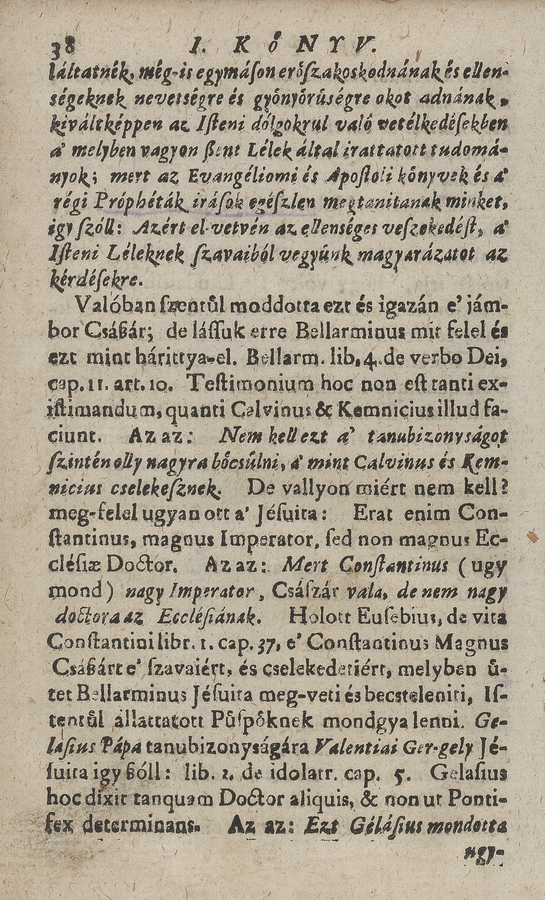 38 I. KőNYV.
láltatnék, még-is egymáſon erőſzakoskodnának és ellen-
ségeknek nevetségre és gyönyörűségre okot adnának,
kiváltképpen az Iſteni dólgokrul való vetélkedéſekben
a' melyben vagyon ßent Lélek által irattatott tudomá-
nyok; mert az Evangéliomi és Apoſtoli könyvek és a'
régi Próphéták iráſok egéſzlen megtanitanak minket,
igy ſzóll: Azért el-vetvén az ellenséges veſzekedéſt, a'
Iſteni Léleknek ſzavaiból vegyünk magyarázatot az
kérdéſekre.
Valóban ſzentűl moddotta ezt és igazán e' jám-
bor Cſáßár; de láſſuk erre Bellarminus mit felel és
ezt mint hárittya-el. Bellarm. lib, 4. de verbo Dei,
cap. 11. art. 10. Teſtimonium hoc non eſt tanti ex-
iſtimandum, quanti Calvinus & Kemnicius illud fa-
ciunt. Az az: Nem kell ezt a' tanubizonyságot
ſzintén olly nagyra böcsülni, a' mint Calvinus és Kem-
nicius cselekeſznek. De vallyon miért nem kell?
meg-felel ugyan ott a' Jéſuita: Erat enim Con-
ſtantinus, magnus Imperator, ſed non magnus Ec-
cléſiæ Doctor. Az az: Mert Conſtantinus (ugy
mond) nagy Imperator, Csáſzár vala, de nem nagy
doctora az Eccléſiának. Holott Euſebius, de vita
Conſtantini libr. 1. cap. 37, e' Conſtantinus Magnus
Csáßárt e' ſzavaiért, és cselekedetiért, melyben ű-
tet Bellarminus Jéſuita meg-veti és becsteleniti, Iſ-
tentűl állattatott Püſpőknek mondgya lenni. Ge-
laſius Pápa tanubizonyságára Valentiai Ger-gely Jé-
ſuita igy ßóll: lib. 2. de idolatr. cap. 5. Gelaſius
hoc dixit tanquam Doctor aliquis, & non ut Ponti-
fex determinans. Az az: Ezt Géláſius mondotta
ugy-